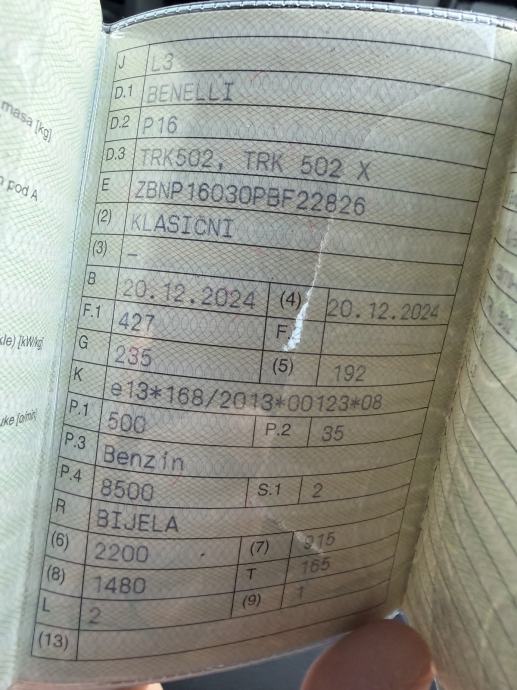 masa [kg]
pod A
kle) [kW/kg]
uke [o/min]
J L3
D.1 BENELLI
D.2 P16
D.3 TRK502, TRK 502 X
E ZBNP16030PBF22826
(2) KLASIČNI
(3) –
B 20.12.2024 (4) 20.12.2024
F.1 427 F.
G 235 (5) 192
K e13*168/2013*00123*08
P.1 500 P.2 35
P.3 Benzin
P.4 8500 S.1 2
R BIJELA
(6) 2200 (7) 915
(8) 1480 T 165
L 2 (9) 1
(13)